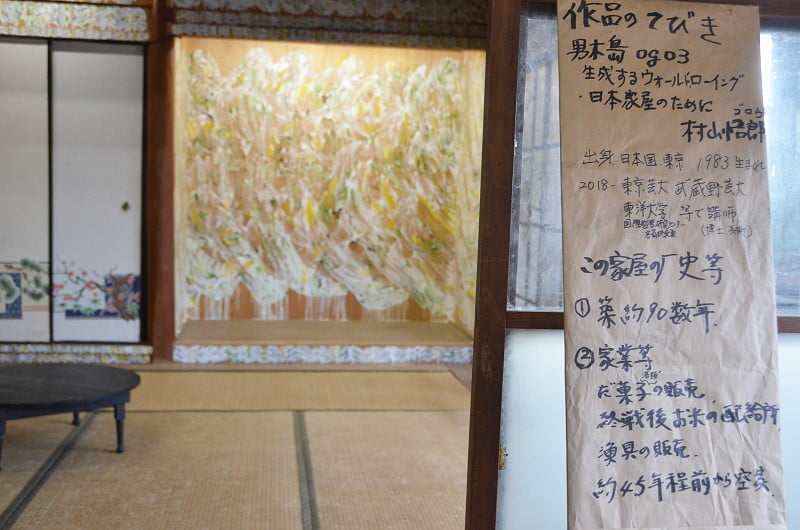 作品のてびき
男木島 og03
生成するウォールドローイング
・日本家屋のために
ゴロウ
村山悟郎
出身 日本国 東京 1983 生まれ
2018- 東京芸大 武蔵野芸大
東洋大学 等で講師
(博士 美術)
この家屋の歴史等
① 築約90数年
② 家業等
だ菓子の販売
終戦後お米の配給所
漁具の販売
約45年程前から空家